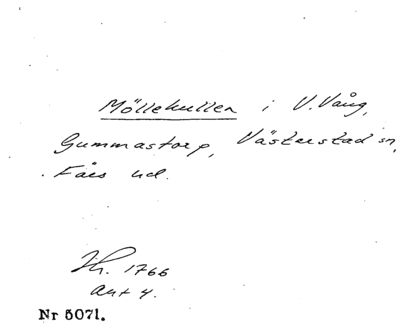 Möllekullen i V. Vång,
Gummastorp, Västerstad sn,
Färs hd.
Jh. 1766
akt 4.
Nr 5071.